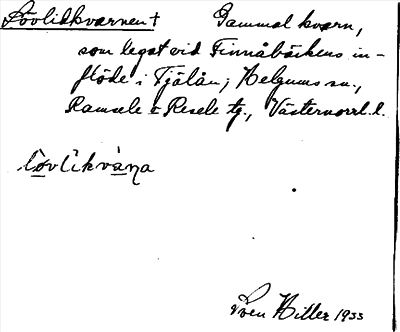 Lövlidkvarnen † Gammal kvarn,
som legat vid Finnåbäckens in-
flöde i Fjälån; Helgums sn.,
Ramsele o Resele tg., Västernorrl. l.
lòvlikvàṇa
Sven Hitter 1933